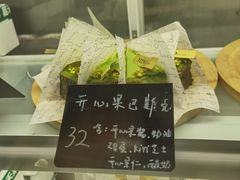 开心果巴斯克
32
含：开心果酱、奶油
鸡蛋、kiri芝士
开心果仁、酸奶